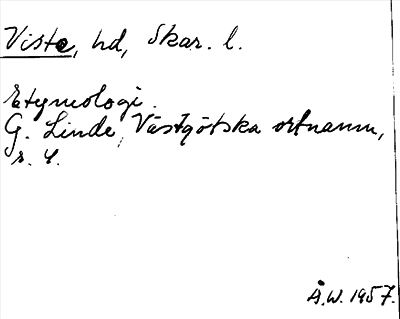 Viste, hd, Skar. l.
Etymologi.
G. Linde, Västgötska ortnamn,
s. 4.
Å.W. 1957.